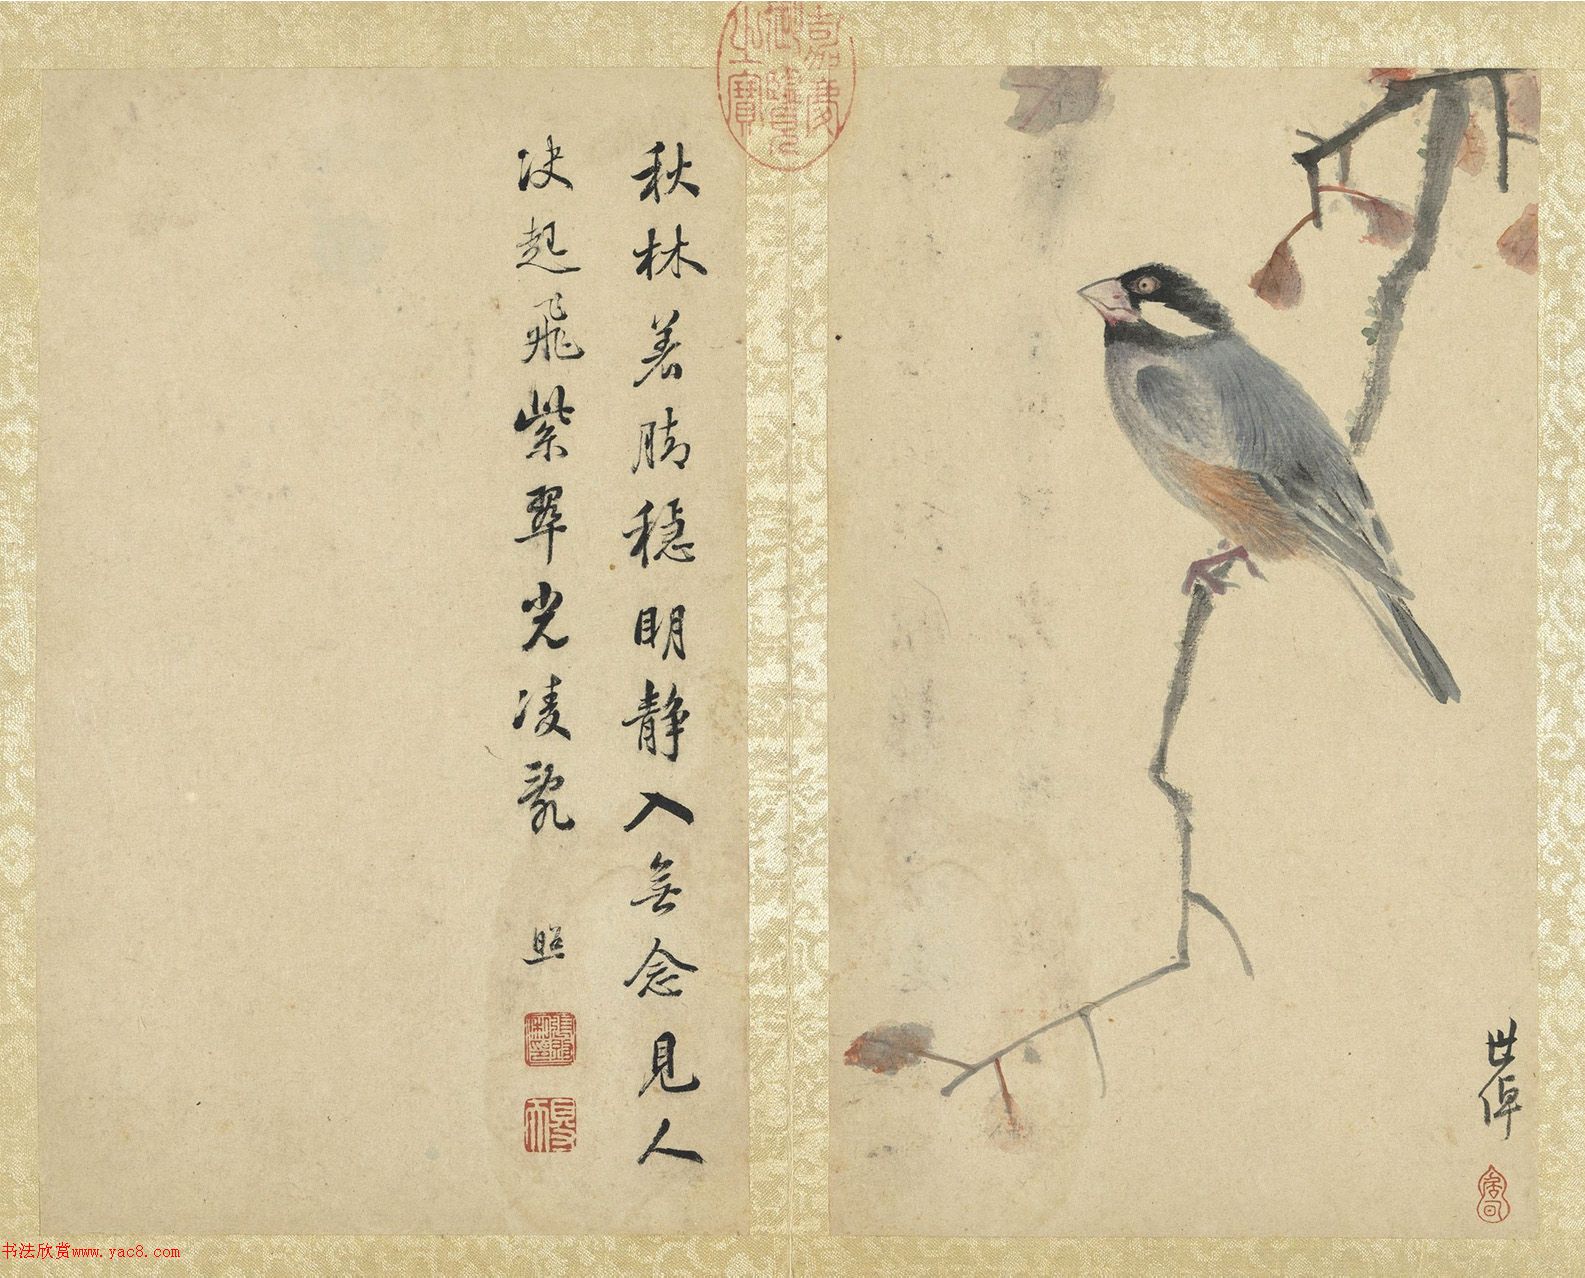 嘉慶
御覽
之寶
世倬
秋林着脚穩明靜入無念見人
决起飛紫翠光凌亂
照
书法欣赏www.yac8.com